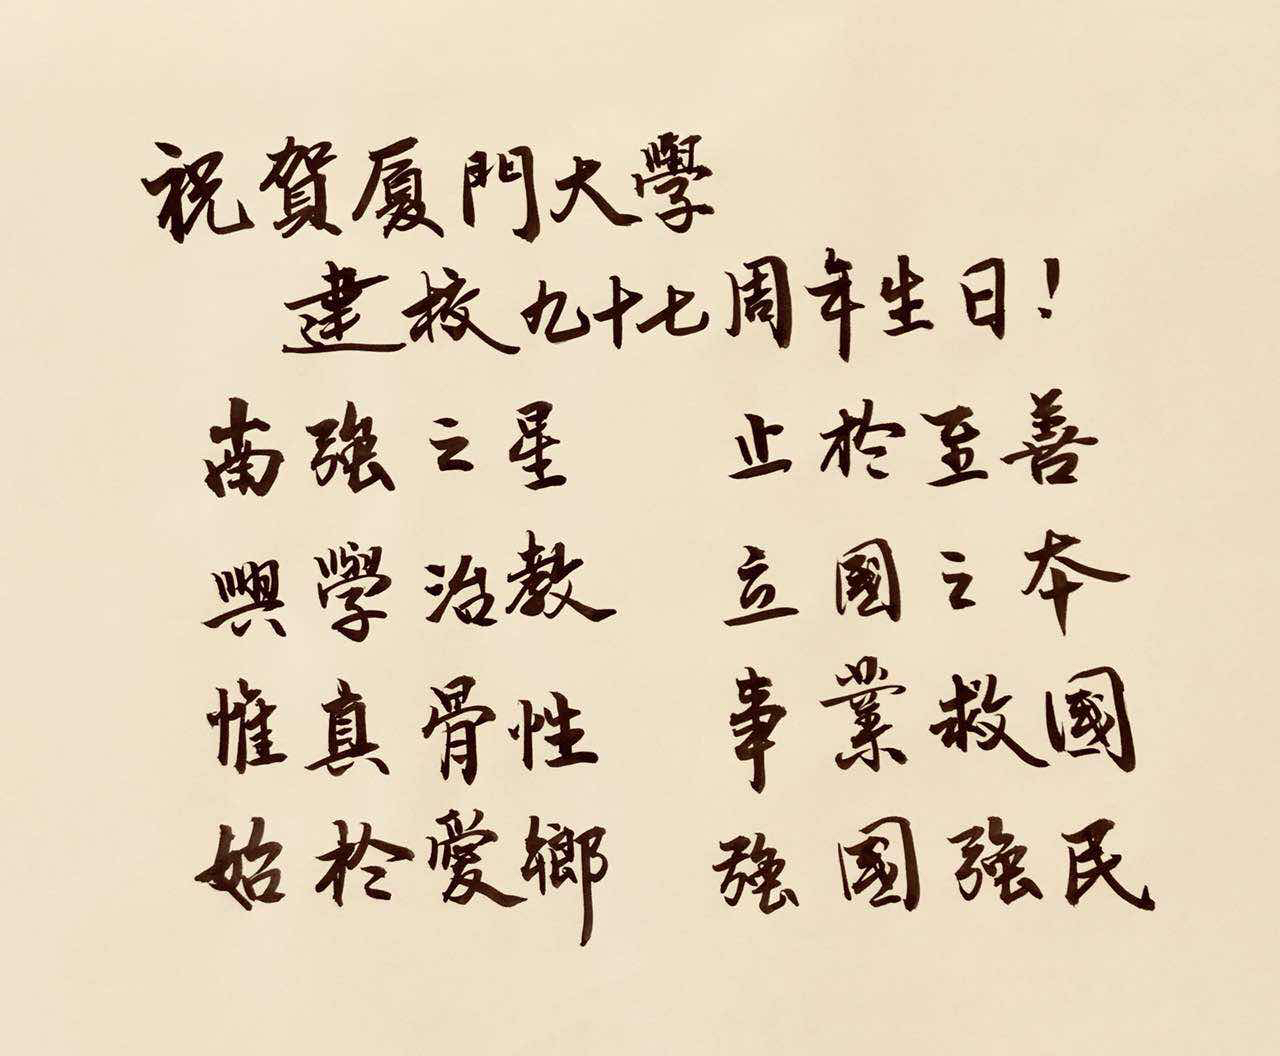 祝賀厦門大學
建校九十七周年生日!
南強之星 止於至善
興學治教 立國之本
惟真骨性 事業救國
始於愛鄉 強國強民